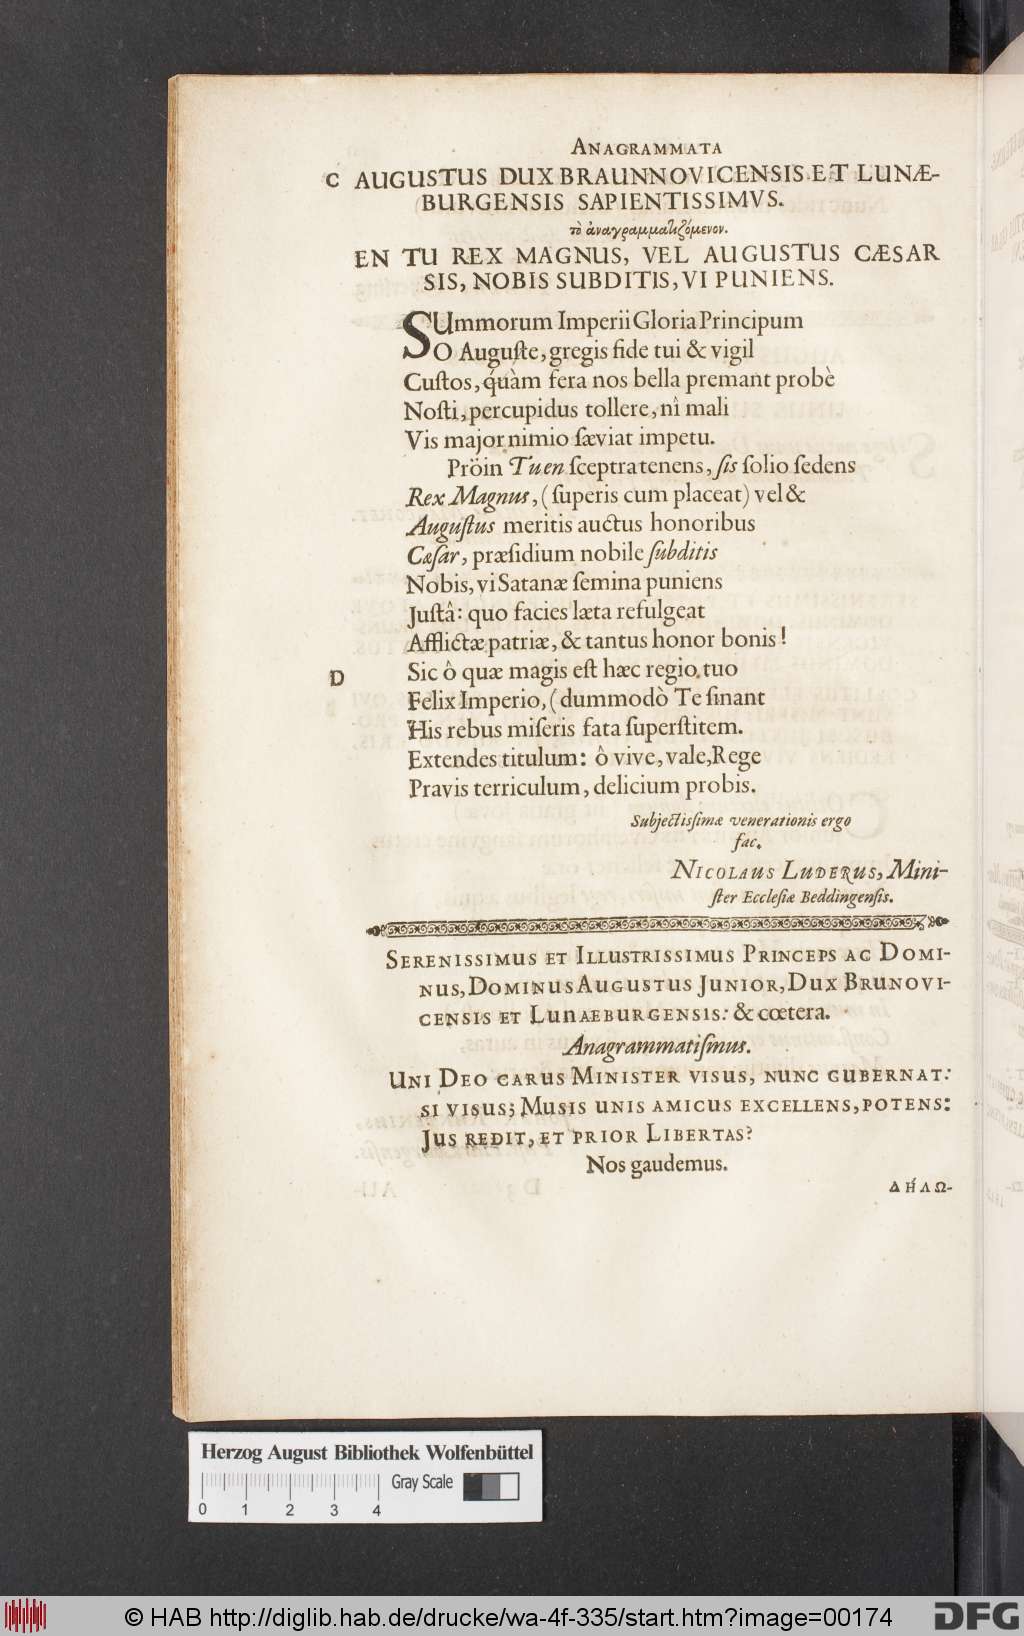 ANAGRAMMATA
C AUGUSTUS DUX BRAUNNOVICENSIS ET LUNÆ-
BURGENSIS SAPIENTISSIMVS.
τὸ ἀναγραμματιζόμενον.
EN TU REX MAGNUS, VEL AUGUSTUS CÆSAR
SIS, NOBIS SUBDITIS, VI PUNIENS.
SUmmorum Imperii Gloria Principum
O Auguſte, gregis fide tui & vigil
Cuſtos, quàm fera nos bella premant probè
Noſti, percupidus tollere, nî mali
Vis major nimio ſæviat impetu.
Pröin Tu en ſceptra tenens, ſis ſolio ſedens
Rex Magnus, (ſuperis cum placeat) vel &
Auguſtus meritis auctus honoribus
Cæſar, præſidium nobile ſubditis
Nobis, vi Satanæ ſemina puniens
Juſtâ: quo facies læta refulgeat
Afflictæ patriæ, & tantus honor bonis!
D Sic ô quæ magis eſt hæc regio tuo
Felix Imperio, (dummodò Te ſinant
His rebus miſeris fata ſuperſtitem.
Extendes titulum: ô vive, vale, Rege
Pravis terriculum, delicium probis.
Subjectiſſimæ venerationis ergo
fac.
NICOLAUS LUDERUS, Mini-
ſter Eccleſiæ Beddingenſis.
SERENISSIMUS ET ILLUSTRISSIMUS PRINCEPS AC DOMI-
NUS, DOMINUS AUGUSTUS JUNIOR, DUX BRUNOVI-
CENSIS ET LUNAEBURGENSIS: & cœtera.
Anagrammatiſmus.
UNI DEO CARUS MINISTER VISUS, NUNC GUBERNAT:
SI VISUS; MUSIS UNIS AMICUS EXCELLENS, POTENS:
JUS REDIT, ET PRIOR LIBERTAS?
Nos gaudemus.
ΔΉΛΩ-
Herzog August Bibliothek Wolfenbüttel
0 1 2 3 4 Gray Scale
© HAB http://diglib.hab.de/drucke/wa-4f-335/start.htm?image=00174 DFG